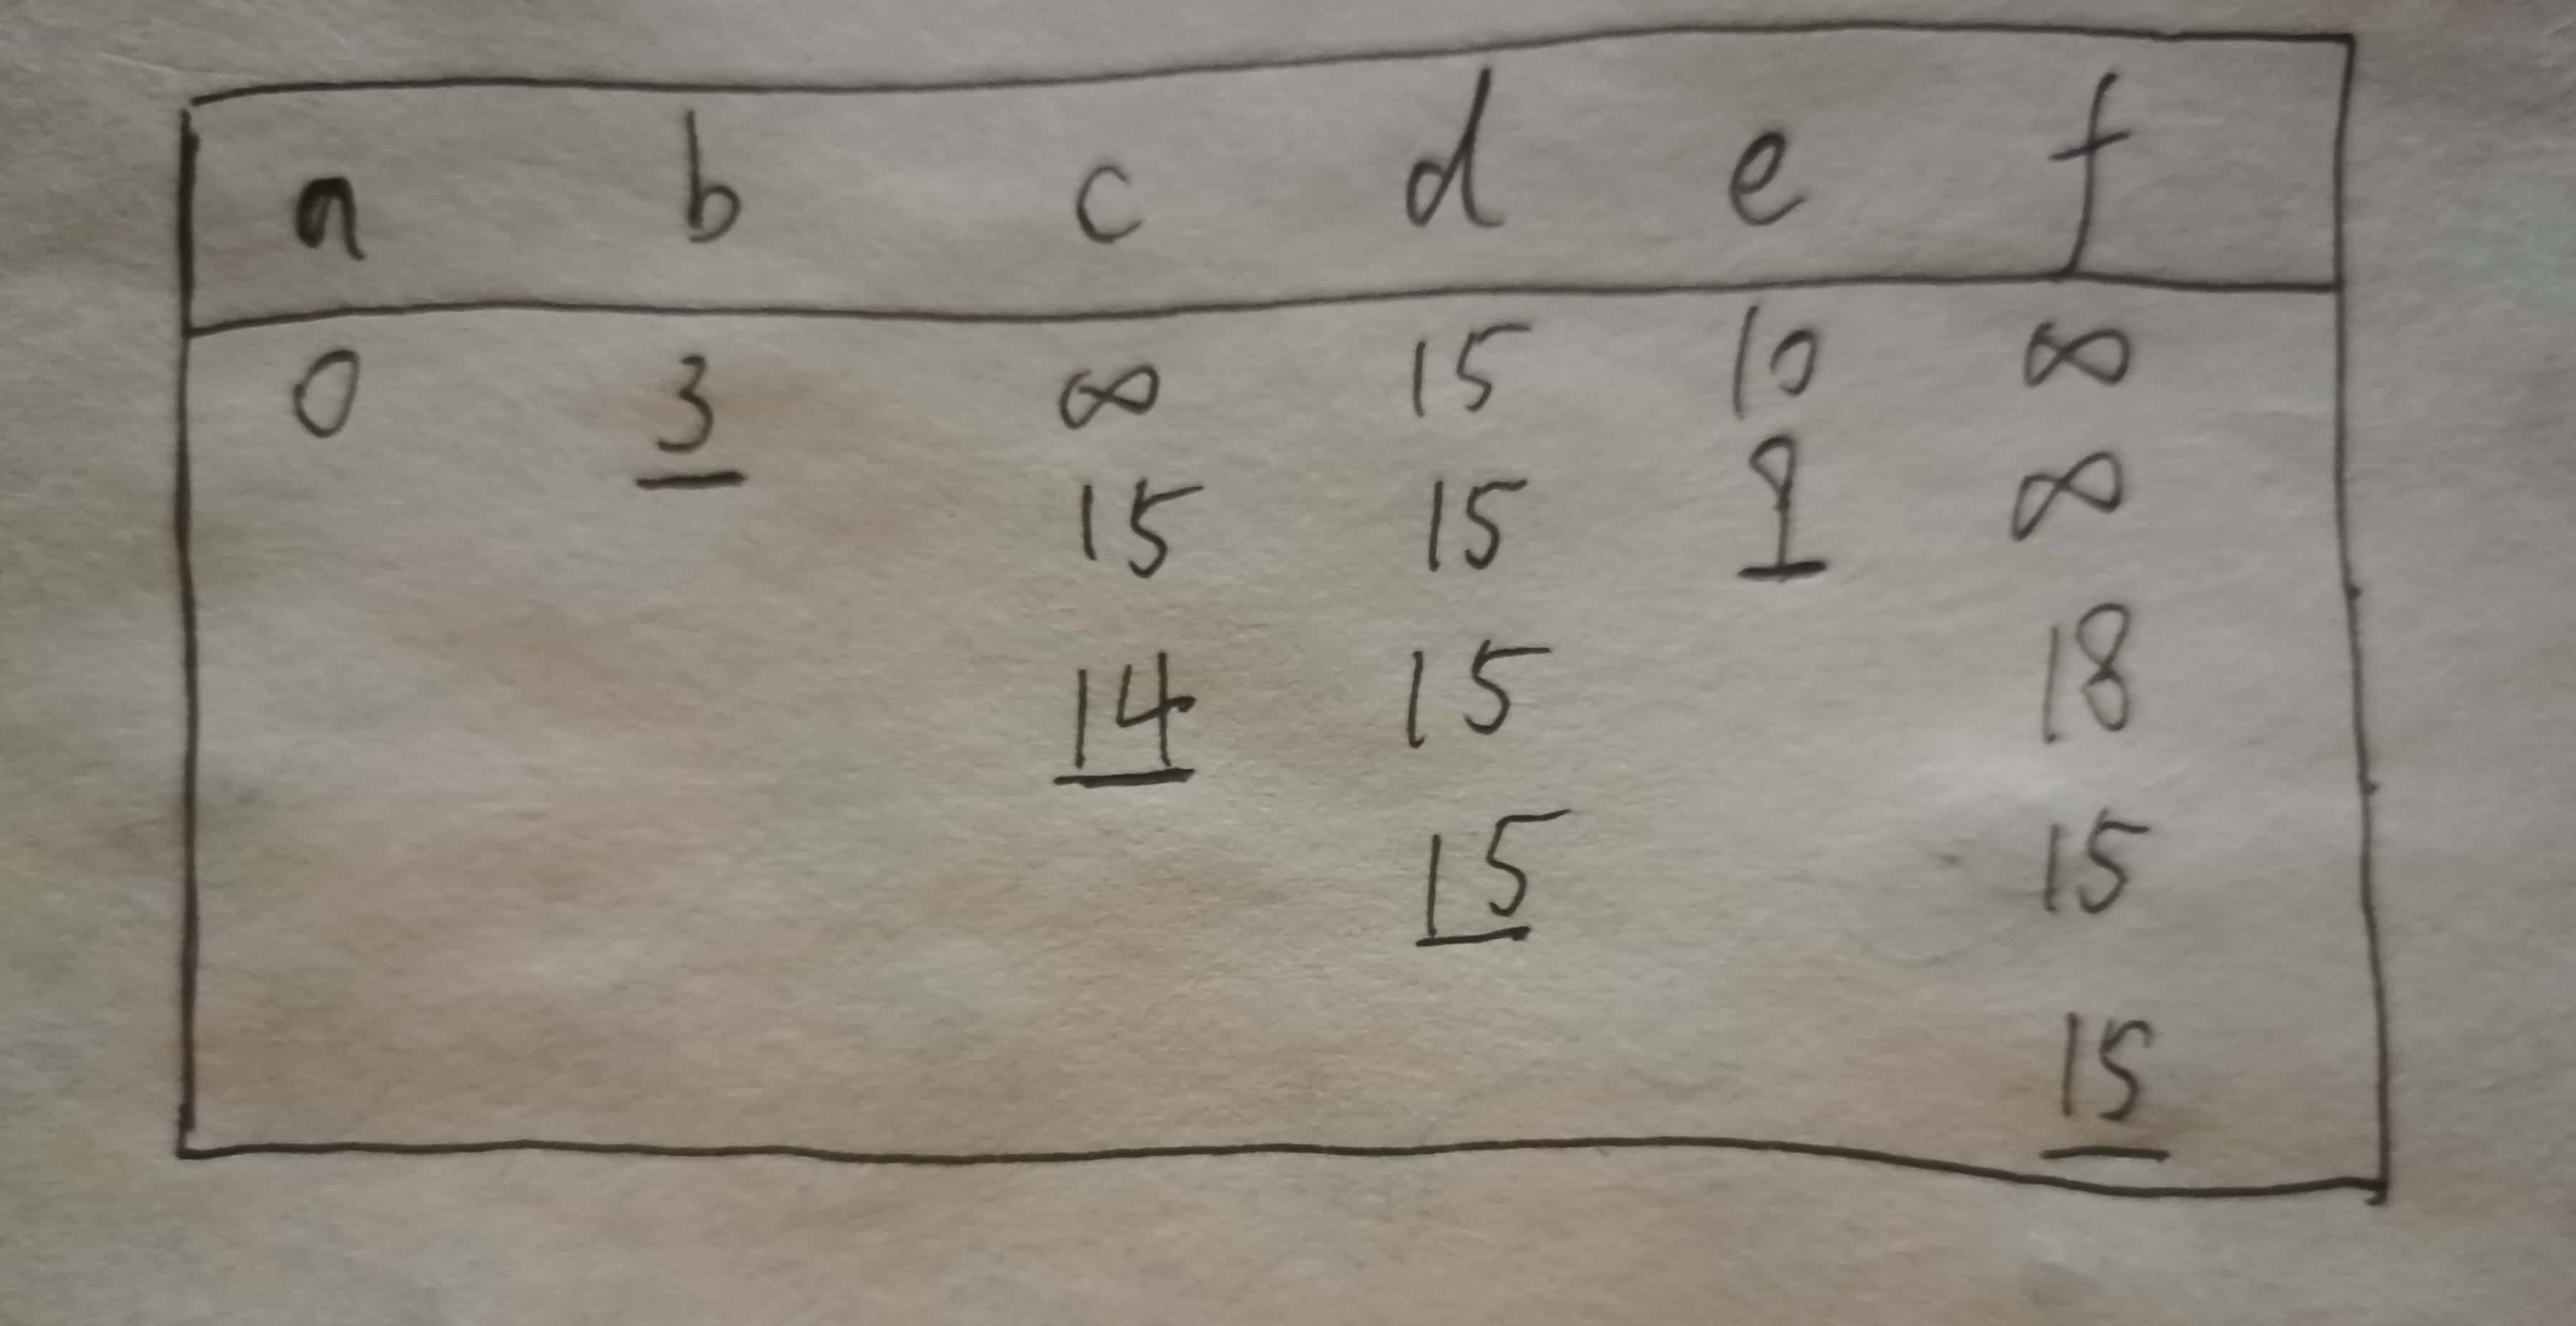 a b c d e f
0 3 ∞ 15 10 ∞
15 15 9 ∞
14 15 18
15 15
15